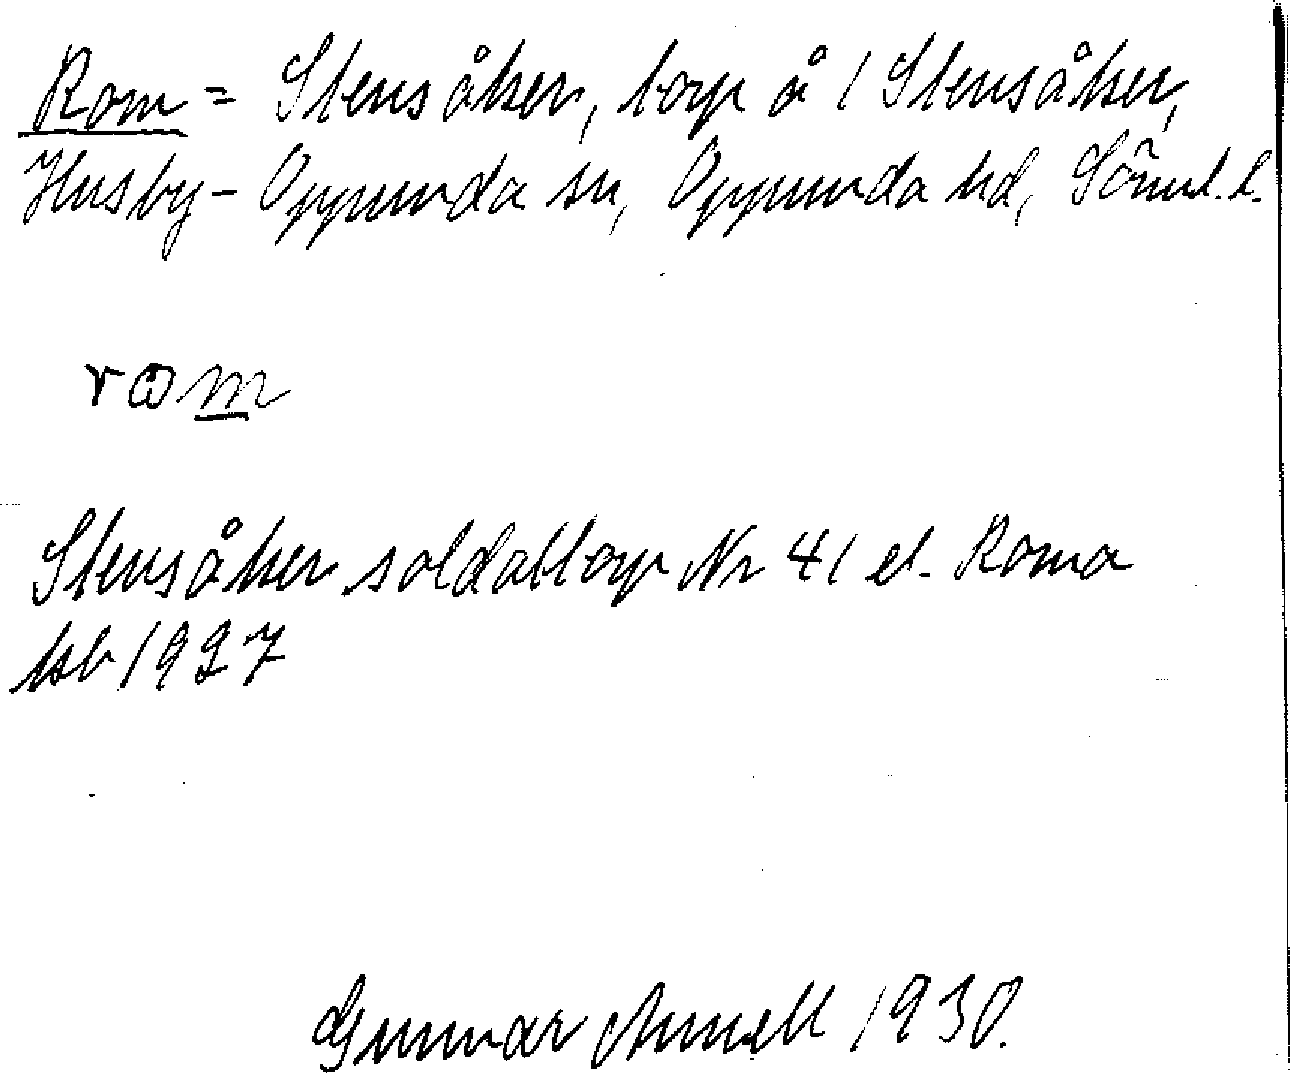 Rom = Stensåker, torp å 1 Stensåker,
Husby-Oppunda sn, Oppunda hd, Söml.l.
rωm
Stensåker soldattorp Nr 41 el. Roma
kb 1927
Gunnar 1930.